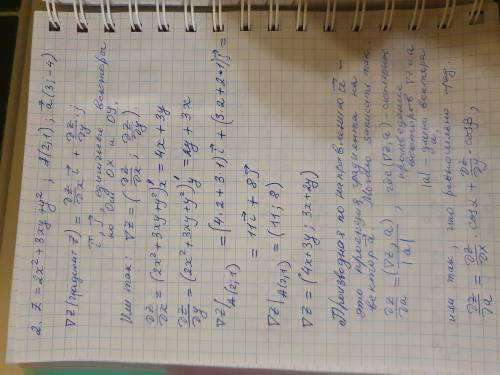 2. z = 2x² + 3xy + y² ; A(2,1); a⃗(3;-4)
∇z (градиент z) = ∂z/∂x i⃗ + ∂z/∂y j⃗;
i⃗, j⃗ - единичные векторы
по оси Ox и Oy.
Или так: ∇z = (∂z/∂x ; ∂z/∂y)
∂z/∂x = (2x² + 3xy + y²)'x = 4x + 3y
∂z/∂y = (2x² + 3xy + y²)'y = 2y + 3x
∇z|A(2,1) = (4·2 + 3·1)i⃗ + (3·2 + 2·1)j⃗ =
= 11i⃗ + 8j⃗
∇z|A(2,1) = (11; 8)
∇z = (4x + 3y; 3x + 2y)
Производная по направлению a⃗ -
это проекция градиента на
вектор a⃗. Можно записать так:
∂z/∂a = (∇z, a)/|a| , где (∇z, a) - скалярное
произведение
векторов ∇z и a
|a| - длина вектора
a
или так, что равносильно пред.
∂z/∂a = ∂z/∂x · cosα + ∂z/∂y · cosβ,